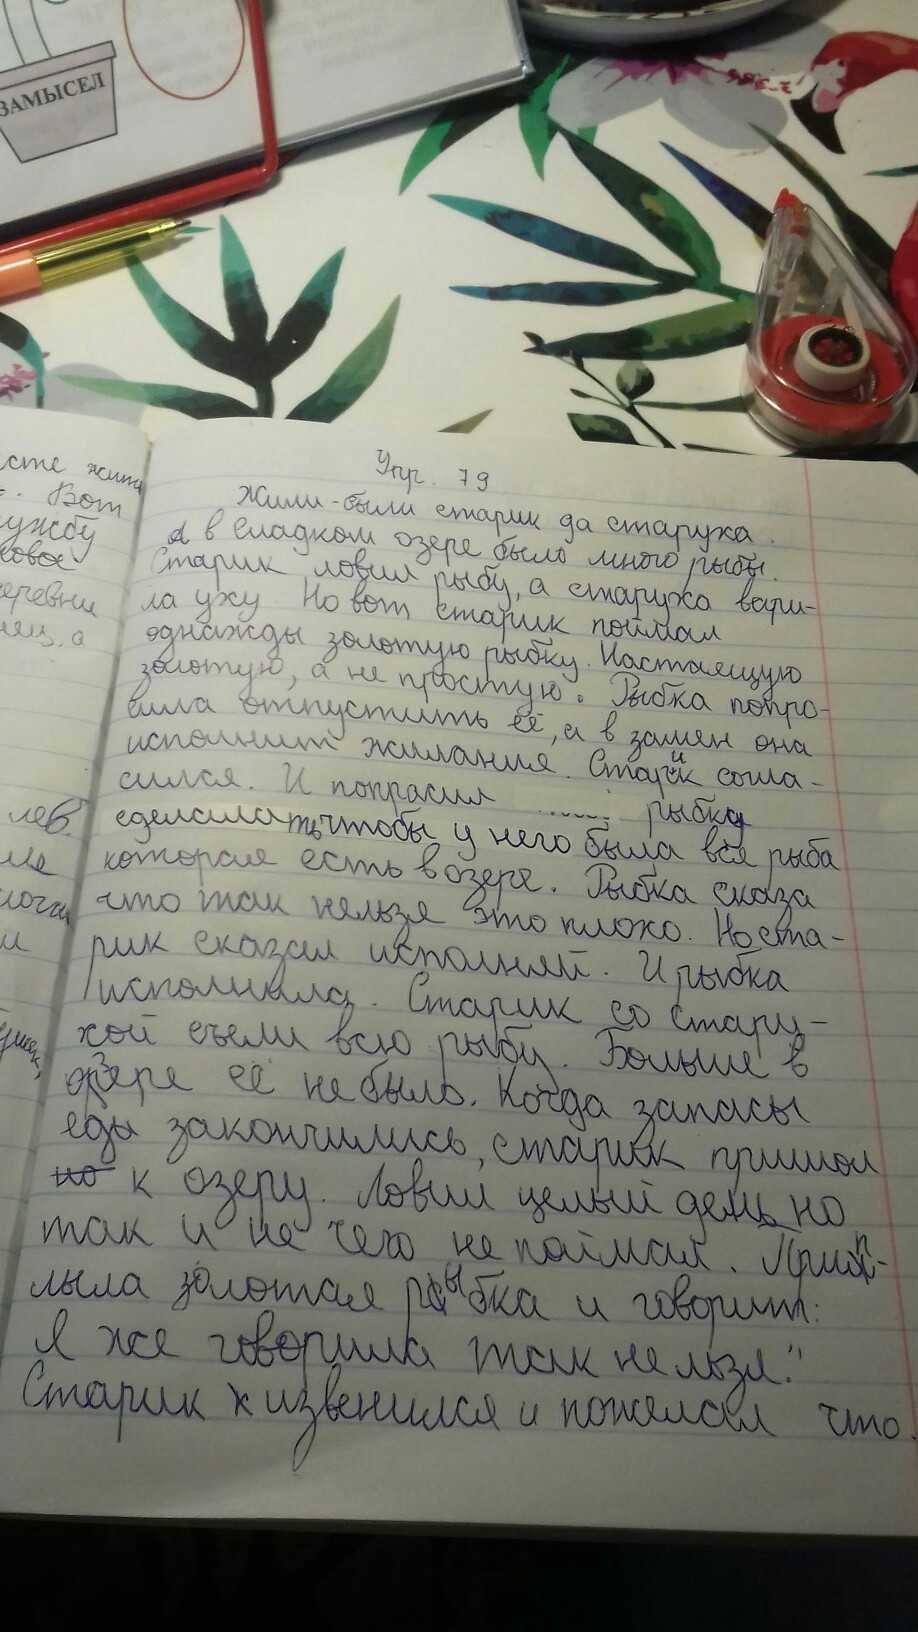 ЗАМЫСЕЛ
сте жить
Вот
ужбу
еревни
нец, а
лев.
Упр. 79
Жили-были старик да старуха.
А в сладком озере было много рыбы.
Старик ловил рыбу, а старуха вари-
ла уху. Но вот старик поймал
однажды золотую рыбку. Настаящую
золотую, а не простую. Рыбка попро-
сила отпустить её, а в замен она
исполнит жилания. Старик согла-
сился. И попрасил рыбку
сделала чтобы у него была вся рыба
которая есть в озере. Рыбка сказа
что так нельзя это плохо. Но ста-
рик сказал исполняй. И рыбка
исполнила. Старик со стару-
хой съели всю рыбу. Больше в
озере её не было. Когда запасы
еды закончились, старик пришол
но к озеру. Ловил целый день но
так и не чего не поймал. Прип-
лыла золотая рыбка и говорит:
Я же говорила так нельзя."
Старик извенился и пожелал что.